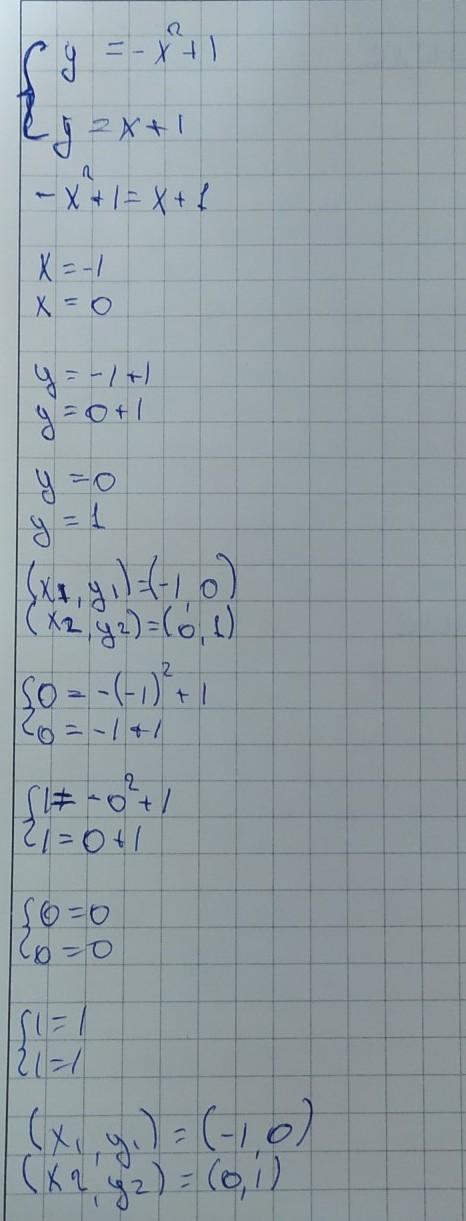 { y = -x² + 1
{ y = x + 1
-x² + 1 = x + 1
x = -1
x = 0
y = -1 + 1
y = 0 + 1
y = 0
y = 1
(x1, y1) = (-1, 0)
(x2, y2) = (0, 1)
{ 0 = -(-1)² + 1
{ 0 = -1 + 1
{ 1 = -0² + 1
{ 1 = 0 + 1
{ 0 = 0
{ 0 = 0
{ 1 = 1
{ 1 = 1
(x1, y1) = (-1, 0)
(x2, y2) = (0, 1)